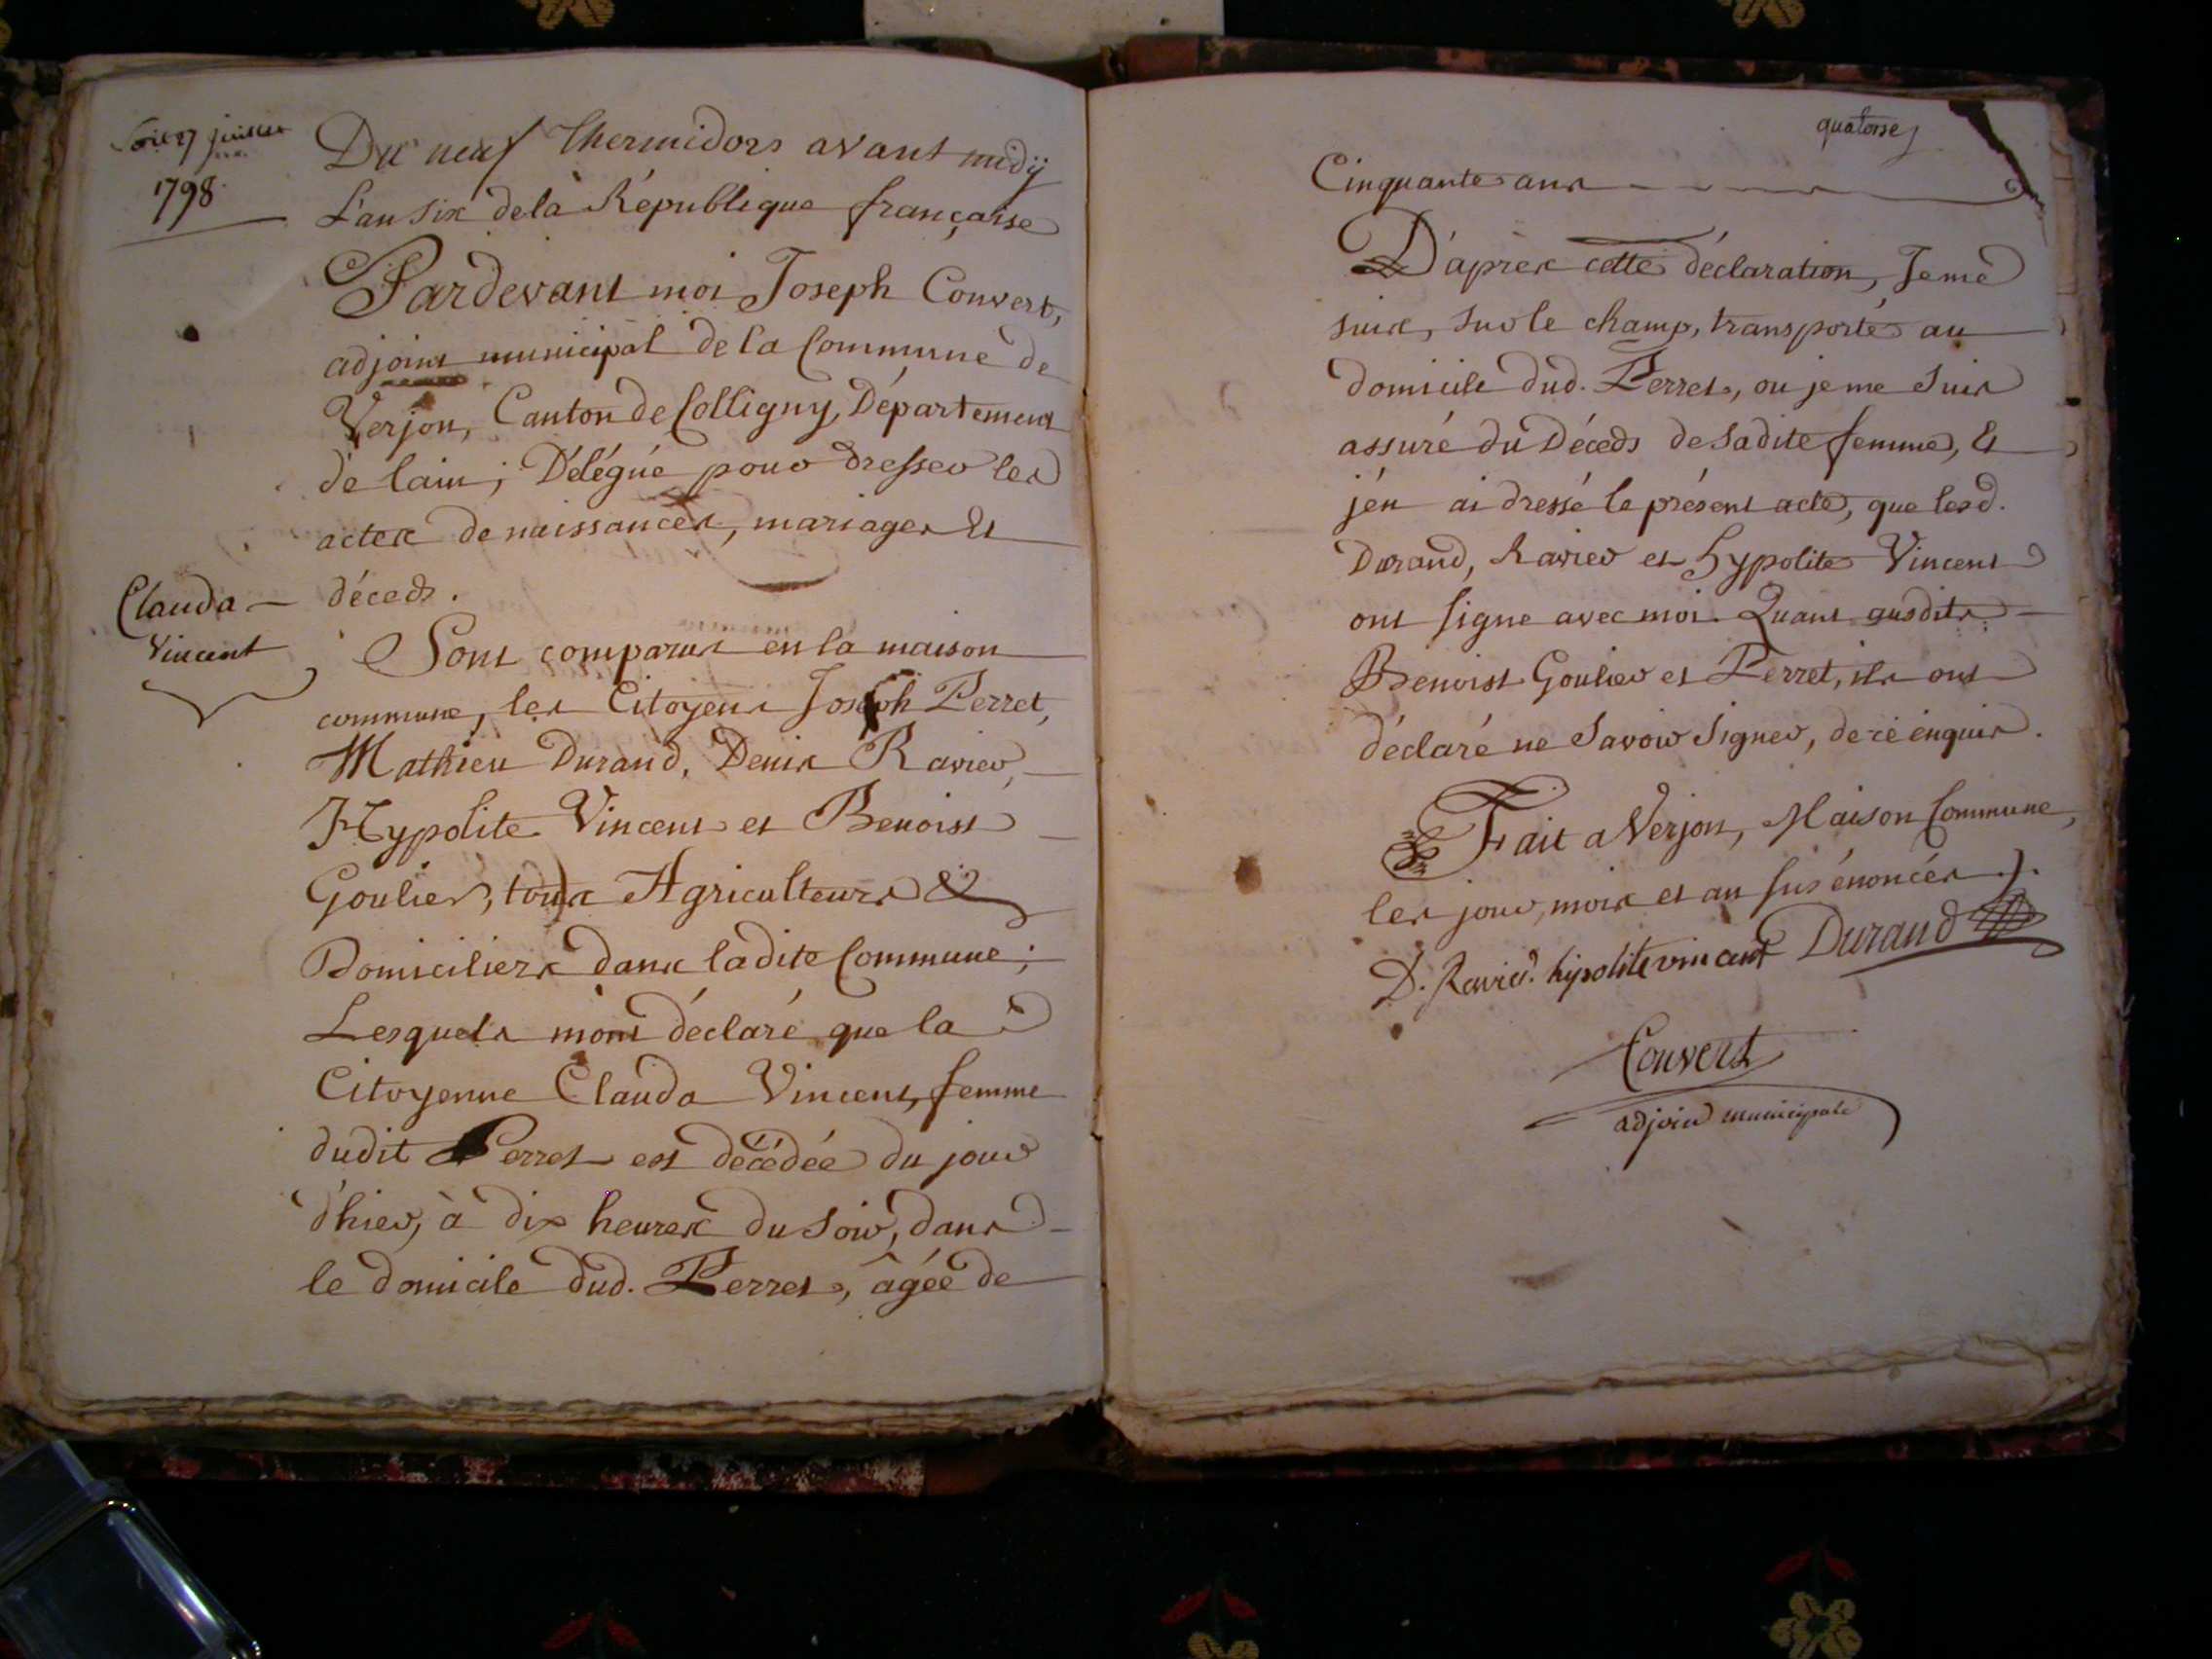 Soit 27 juillet
1798
Du neuf Thermidors avant midÿ
L'an Six de la République française
Pardevant moi Joseph Convert,
adjoint municipal de la Commune de
Verjon, Canton de Colligny, Département
de lain; Délégué pour dresser les
actes de naissances, mariages Et
déceds.
Clauda
Vincent
Sont comparus en la maison
commune, les Citoyens Joseph Perret,
Mathieu Durand, Denis Ravier,
Hypolite Vincent et Benoist
Goulier, tous Agriculteurs &
Domiciliers dans ladite Commune;
Lesquels mont déclaré que la
Citoyenne Clauda Vincent, femme
dudit Perret est décédée du jour
d'hier, à dix heures du Soir, dans
le domicile dud. Perret, âgée de
quatorse
Cinquante ans
D'après cette déclaration, Je me
suis, sur le champ, transporté au
domicile dud. Perret, ou je me suis
assuré du Déceds de sadite femme, Et
jén ai dressé le présent acte, que lesd.
Durand, Ravier et hypolite Vincent
ont signe avec moi. Quant ausdits
Benoist Goulier et Perret, ils ont
déclaré ne Savoir Signer, de ce enquis.
Fait a Verjon, Maison Commune,
les jour, mois et an sus énoncés.
D. Ravier. hipolite vincent Durand
Convert
adjoint municipale